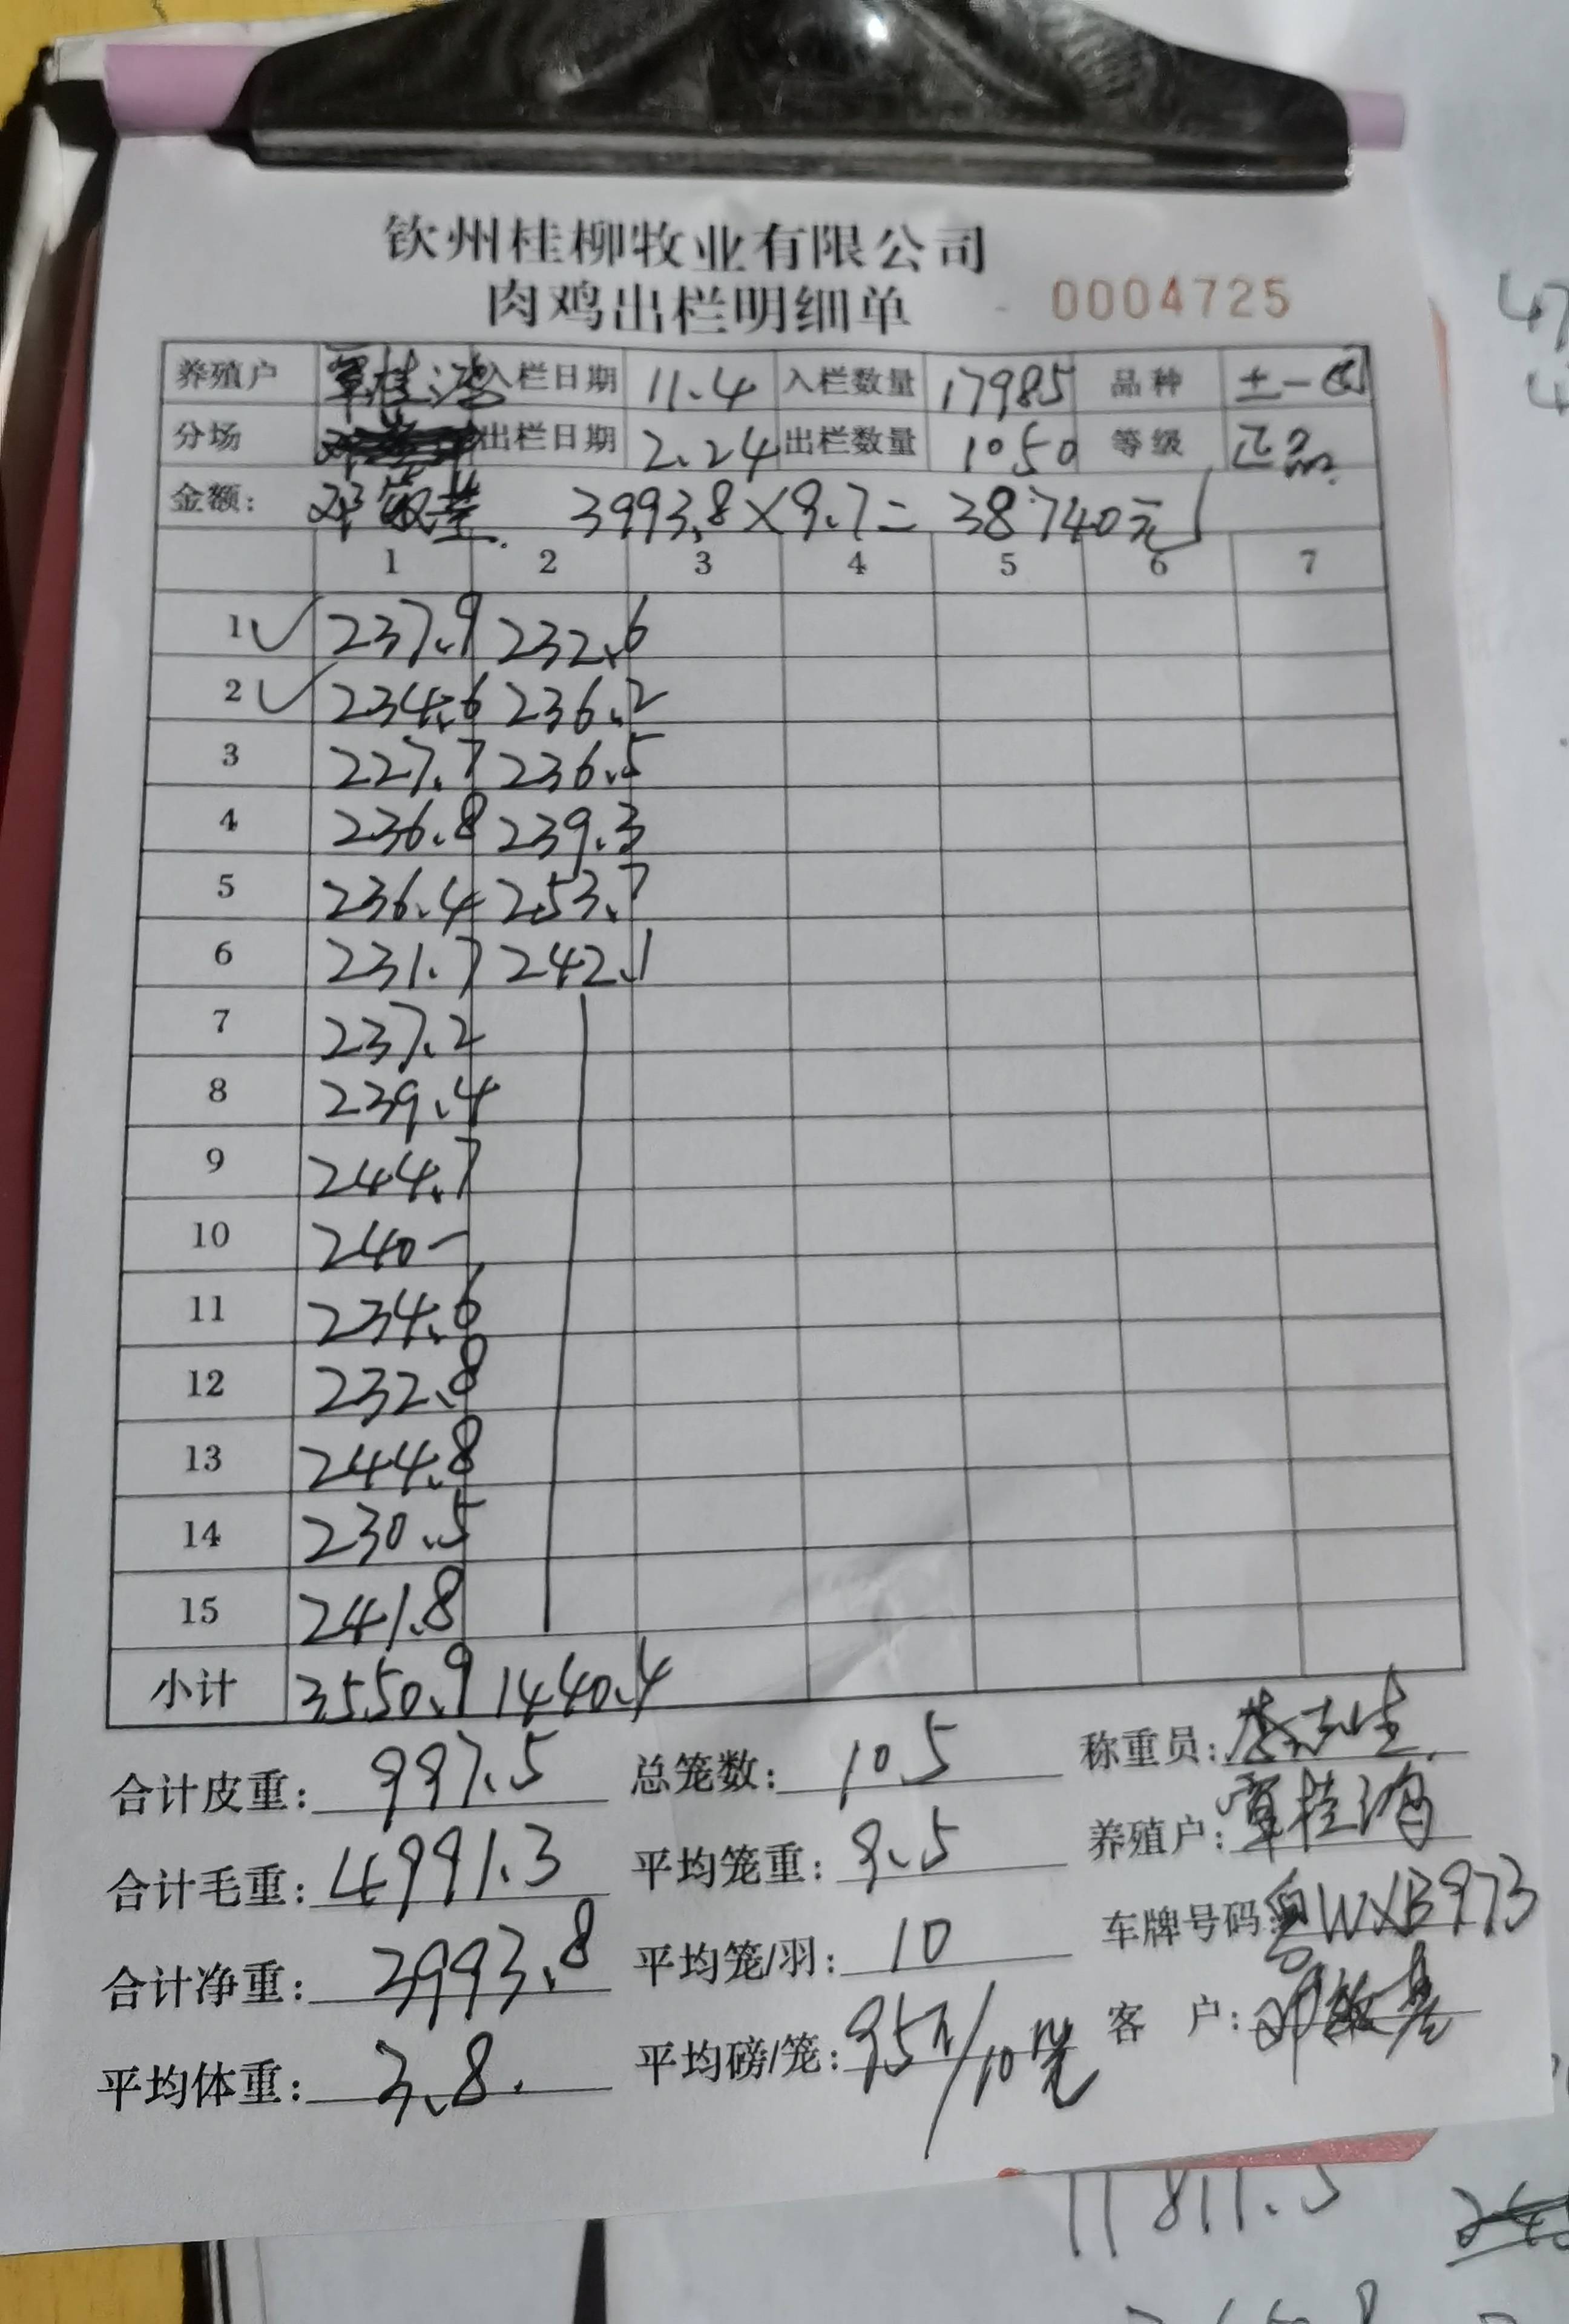 钦州桂柳牧业有限公司
肉鸡出栏明细单 0004725
养殖户 覃桂鸿 入栏日期 11.4 入栏数量 17985 品种 土一
分场 出栏日期 2.24 出栏数量 1050 等级 正品
金额: 邓敬基 3993.8×9.7=38740元
1 2 3 4 5 6 7
1 237.9 232.6
2 234.6 236.2
3 227.7 236.5
4 236.8 239.3
5 236.4 253.7
6 231.7 242.1
7 237.2
8 239.4
9 244.7
10 240-
11 234.6
12 232.8
13 244.8
14 230.5
15 241.8
小计 3550.9 1440.4
合计皮重: 997.5 总笼数: 105 称重员:
合计毛重: 4991.3 平均笼重: 9.5 养殖户: 覃桂鸿
合计净重: 3993.8 平均笼/羽: 10 车牌号码: WXB973
平均体重: 3.8. 平均磅/笼: 95斤/10笼 客 户:
11811.5